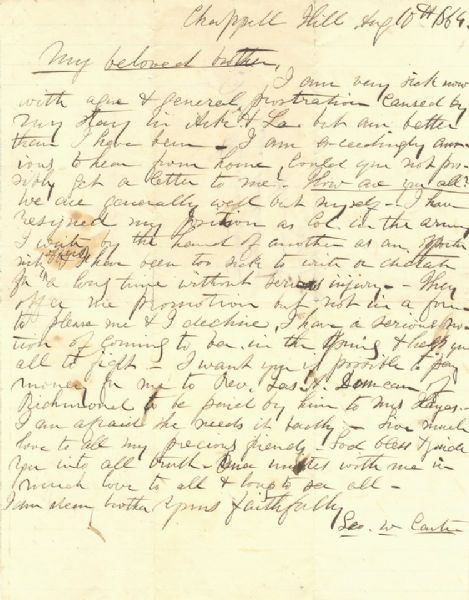 Chappell Hill Aug 10th 1864.
My beloved brother,
I am very sick now
with ague & general prostration caused by
my stay in Ark & La. but am better
than I have been - I am exceedingly anx-
ious to hear from home, Could you not pos-
sibly get a letter to me - How are you all?
We are generally well but myself - I have
resigned my position as Col. in the army
I write by the hand of another as an
I have been too sick to write or dictate
for a long time without serious injury - They
offer me promotion but not in a form
to please me & I decline, I have a serious no-
tion of coming to be in the Spring & help you
all to fight - I want you if possible to pay
money for me to Rev. Jas. A. Duncan of
Richmond to be paid by him to Mrs Hayes.
I am afraid she needs it badly - Give much
love to all my precious friends God bless & guide
you into all truth - unites with me in
much love to all & long to see all -
I am dear brother yours faithfully
Geo. W Carter